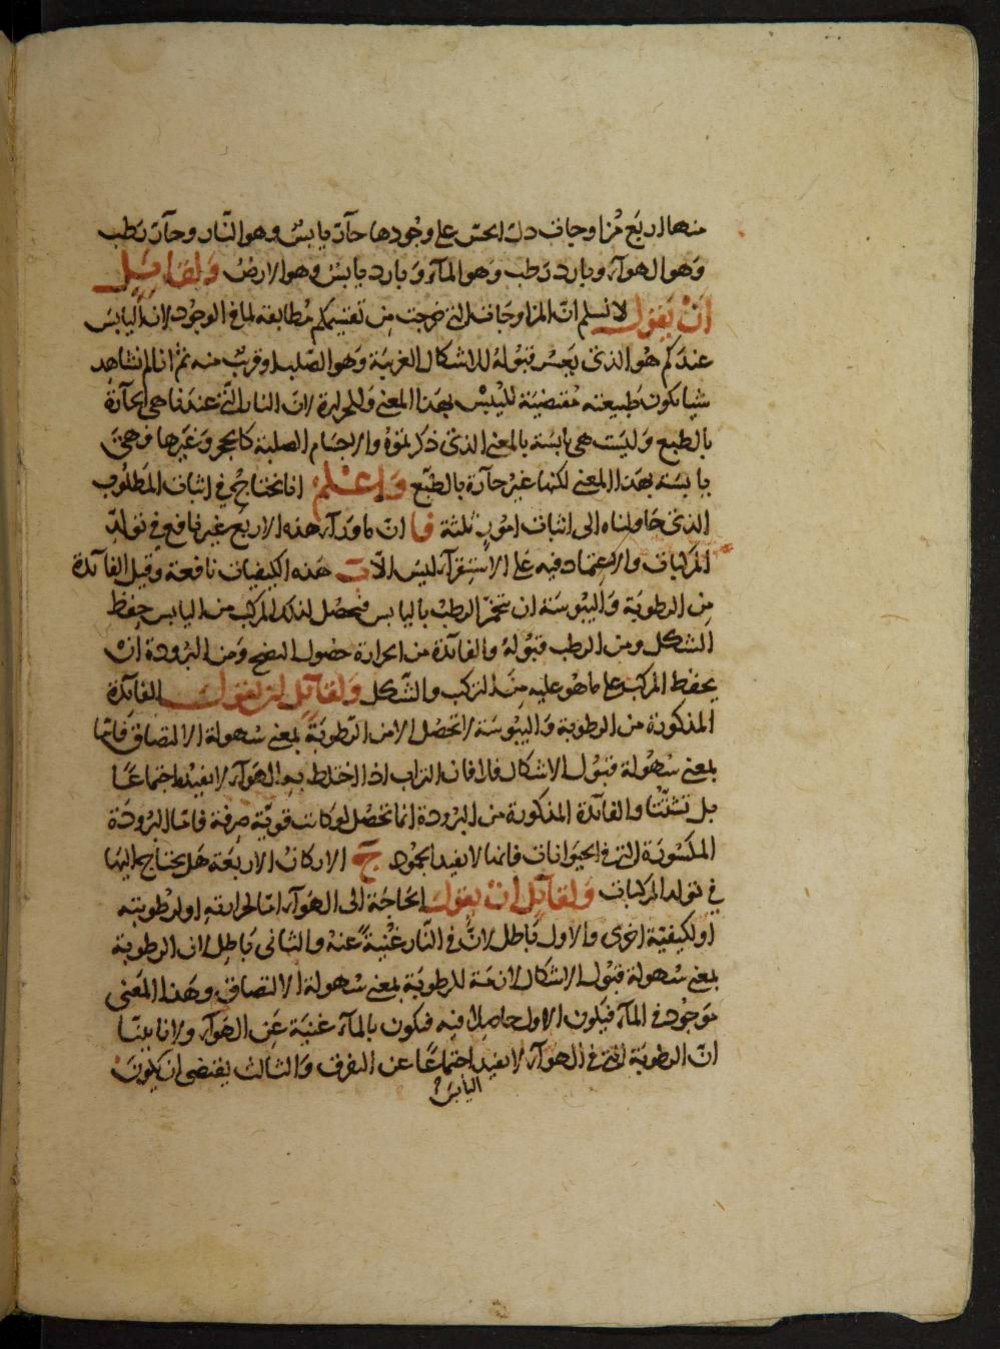 منها اربع مزاوجات دل الحس على وجودها حارّ يابس وهو النّار وحارّ رطب
وهو الهوآء وبارد رطب وهو المآء وبارد يابس وهو الارض ولقائل
ان يقول لا نسلم انّ المزاوجات التى خرجت من تقسيمكم مطابقة لما فى الوجود لان اليابس
عندكم هو الذى يعسر قبوله للاشكال الغريبة وهو الصّلب وقريب منه ثم انا لم نشاهد
شيا يكون طبيعته مقتضية لليبس بهذا المعنى وللحرارة لانّ النار التى عندنا هى الحآرّة
بالطبع وليست هى يابسة بالمعنى الذى ذكرتموه والاجسام الصلبة كالحجر وغيرها فهى
يابسة بهذا المعنى لكنها غير حآرة بالطبع واعلم انا نحتاج فى اثبات المطلوب
الذى حاولناه الى اثبات امور ثلثة ا انّ ماورآء هذه الاربع غير نافع فى تولد
المركبات والاعتماد فيه على الاستقرآء ليس الّا ب هذه الكيفيات نافعة وقيل الفآئدة
من الرطوبة واليبوسة ان يتخمّر الرطب باليابس فيحصل لذلك المركب من اليابس حفظ
الشكل ومن الرطب قبوله والفآئدة من الحرارة حصول النضج ومن البرودة ان
يحفظ المركب على ما هو عليه من التركب والشّكل ولقآئل ان يقول الفآئدة
المذكورة من الرطوبة واليبوسة لا تحصل الا من الرّطوبة بمعنى سهولة الالتصاق فامّا
بمعنى سهولة قبول الاشكال فلا فان التراب اذا اختلط به الهوآء لا يفيده اجتماعًا
بل تشتّتا والفآئدة المذكورة من البرودة انما تحصل لو كانت قويّة صرفة فامّا البرودة
المكسورة التى فى الحيوانات فانها لا تفيد الجمود ج الاركان الاربعة هل يحتاج اليها
فى تولد المركبات ولقآئل ان يقول الحاجة الى الهوآء امّا لحرارته او لرطوبته
او لكيفيّة اخرى والاول باطل لانّ فى النّار غنية عنه والثانى باطل لان الرطوبة
بمعنى سهولة قبول الاشكال لازمة للرطوبة بمعنى سهولة الالتصاق وهذا المعنى
موجود فى المآء فيكون الاول حاصلا فيه فيكون بالمآء غنية عن الهوآء ولانا بيّنا
انّ الرطوبة التى فى الهوآء لا تفيد اجتماعًا عن التفرق والثالث يقتضى ان يكون
اليابس